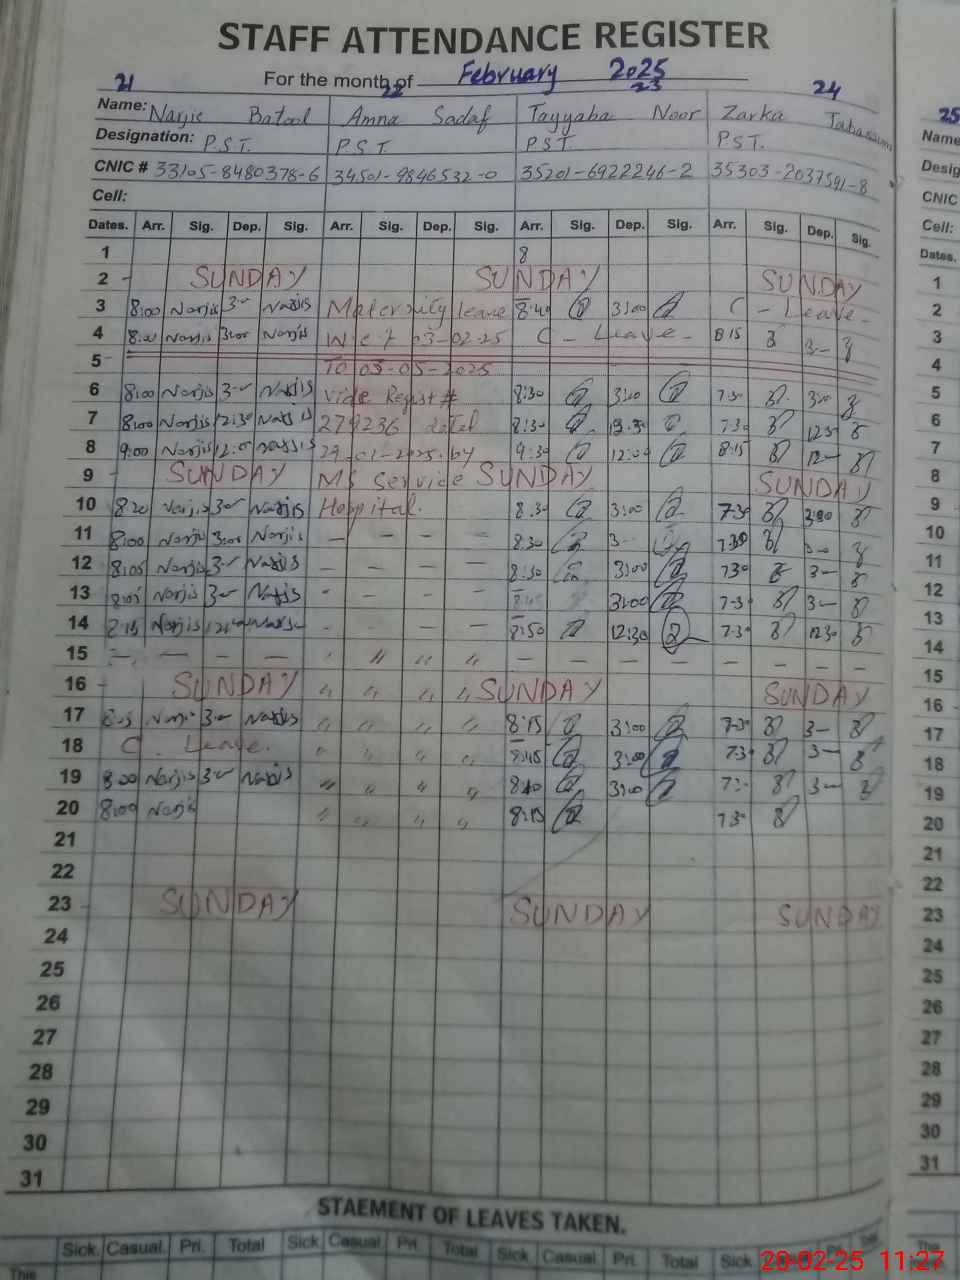 STAFF ATTENDANCE REGISTER
For the month of February 2025
21 22 23 24
Name: Narjis Batool Amna Sadaf Tayyaba Noor Zarka Tabassum
Designation: P.S.T. P.S.T. P.S.T. P.S.T.
CNIC # 33105-8480378-6 34501-9846532-0 35201-6922246-2 35303-2037591-8
Cell:
Dates. Arr. Sig. Dep. Sig. Arr. Sig. Dep. Sig. Arr. Sig. Dep. Sig. Arr. Sig. Dep. Sig.
1 8
2 SUNDAY SUNDAY SUNDAY
3 8:00 Narjis 3- Narjis Maternity leave 8:40 3:00 C - Leave
4 8:00 Narjis 3:00 Narjis W.e.f 03-02-25 C - Leave - 8:15 3-
5 To 03-05-2025
6 8:00 Narjis 3- Narjis vide Regist # 8:30 3:00 7:30 3:00
7 8:00 Narjis 12:30 Narjis 279236 dated 8:30 7:30 12:30
8 9:00 Narjis 12:00 Narjis 29-01-2025 by 9:30 12:00 8:15 12-
9 SUNDAY MS Service SUNDAY SUNDAY
10 8:20 Narjis 3- Narjis Hospital. 8:30 3:00 7:30 3:00
11 8:00 Narjis 3:00 Narjis - - - - 8:30 3- 7:30 3-
12 8:05 Narjis 3- Narjis - - - - 8:30 3:00 7:30 3-
13 8:05 Narjis 3- Narjis - - - - 3:00 7:30 3-
14 8:15 Narjis - - - 8:50 12:30 7:30 12:30
15 - - - - - - - - - - - -
16 SUNDAY SUNDAY SUNDAY
17 Narjis 3- Narjis 8:15 3:00 7:30 3-
18 C. Leave. 8:45 3:00 7:30 3-
19 8:00 Narjis 3- Narjis 8:40 3:00 3-
20 8:00 Narjis 8:15 7:30
21
22
23 SUNDAY SUNDAY SUNDAY
24
25
26
27
28
29
30
31
STAEMENT OF LEAVES TAKEN.
Sick. Casual. Pri. Total Sick. Casual. Pri. Total Sick. Casual. Pri. Total Sick.
This
25
Name
Desig
CNIC
Cell:
Dates.
1
2
3
4
5
6
7
8
9
10
11
12
13
14
15
16
17
18
19
20
21
22
23
24
25
26
27
28
29
30
31
20-02-25 11:27